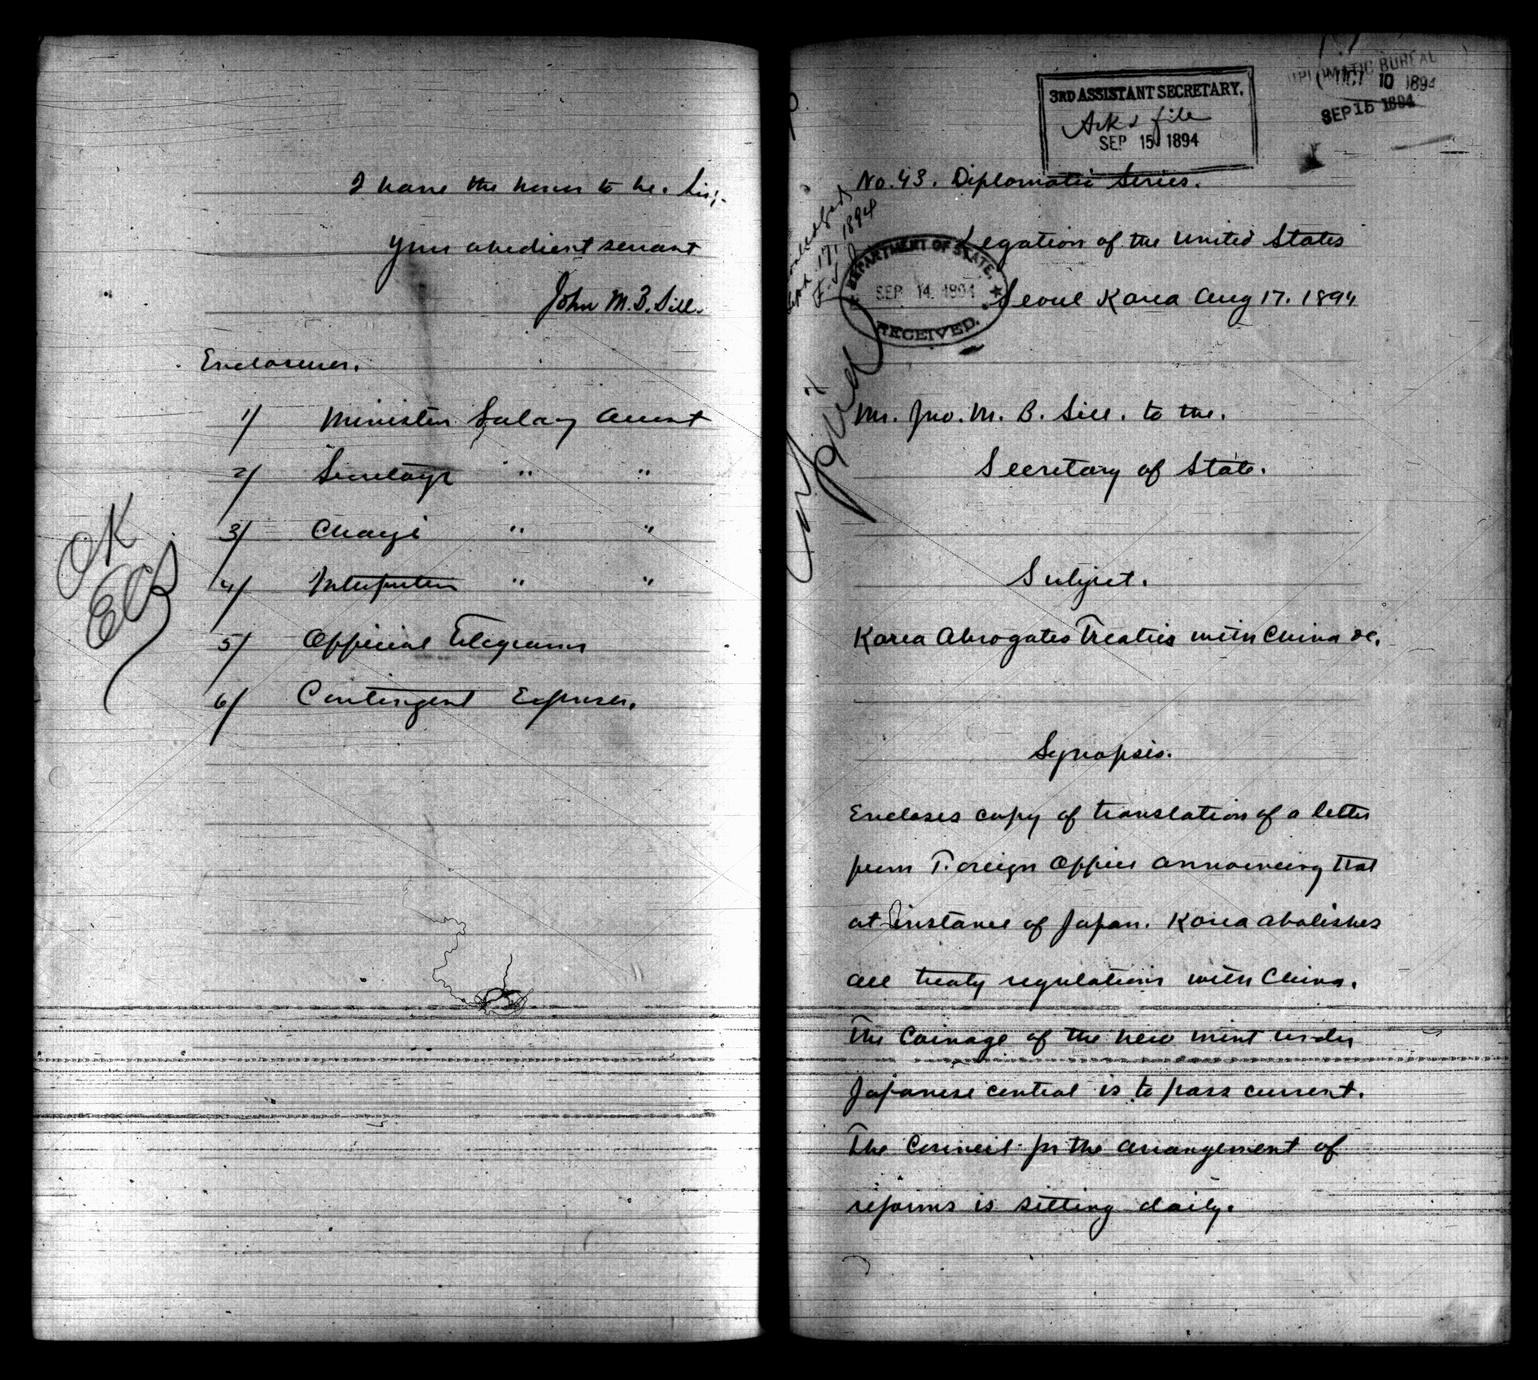 I have the honor to be. Sir,
Your obedient servant
John M. B. Sill.
Enclosures.
1/ Minister Salary Account
2/ Secretary " "
3/ Chargé " "
4/ Interpreter " "
5/ Official Telegrams
6/ Contingent Expenses.
OK
3RD ASSISTANT SECRETARY.
Ack & file
SEP 15 1894
DIPLOMATIC BUREAU
OCT 10 1894
SEP 15 1894
No. 43. Diplomatic Series.
Legation of the United States
Seoul Korea Aug 17. 1894
DEPARTMENT OF STATE.
SEP 14 1894
RECEIVED.
Sept. 17, 1894
Copied
Mr. Jno. M. B. Sill. to the.
Secretary of State.
Subject.
Korea Abrogates Treaties with China &c.
Synopsis.
Encloses copy of translation of a letter
from Foreign Office announcing that
at instance of Japan. Korea abolishes
all treaty regulations with China.
The Coinage of the new mint under
Japanese control is to pass current.
The Council for the arrangement of
reforms is sitting daily.